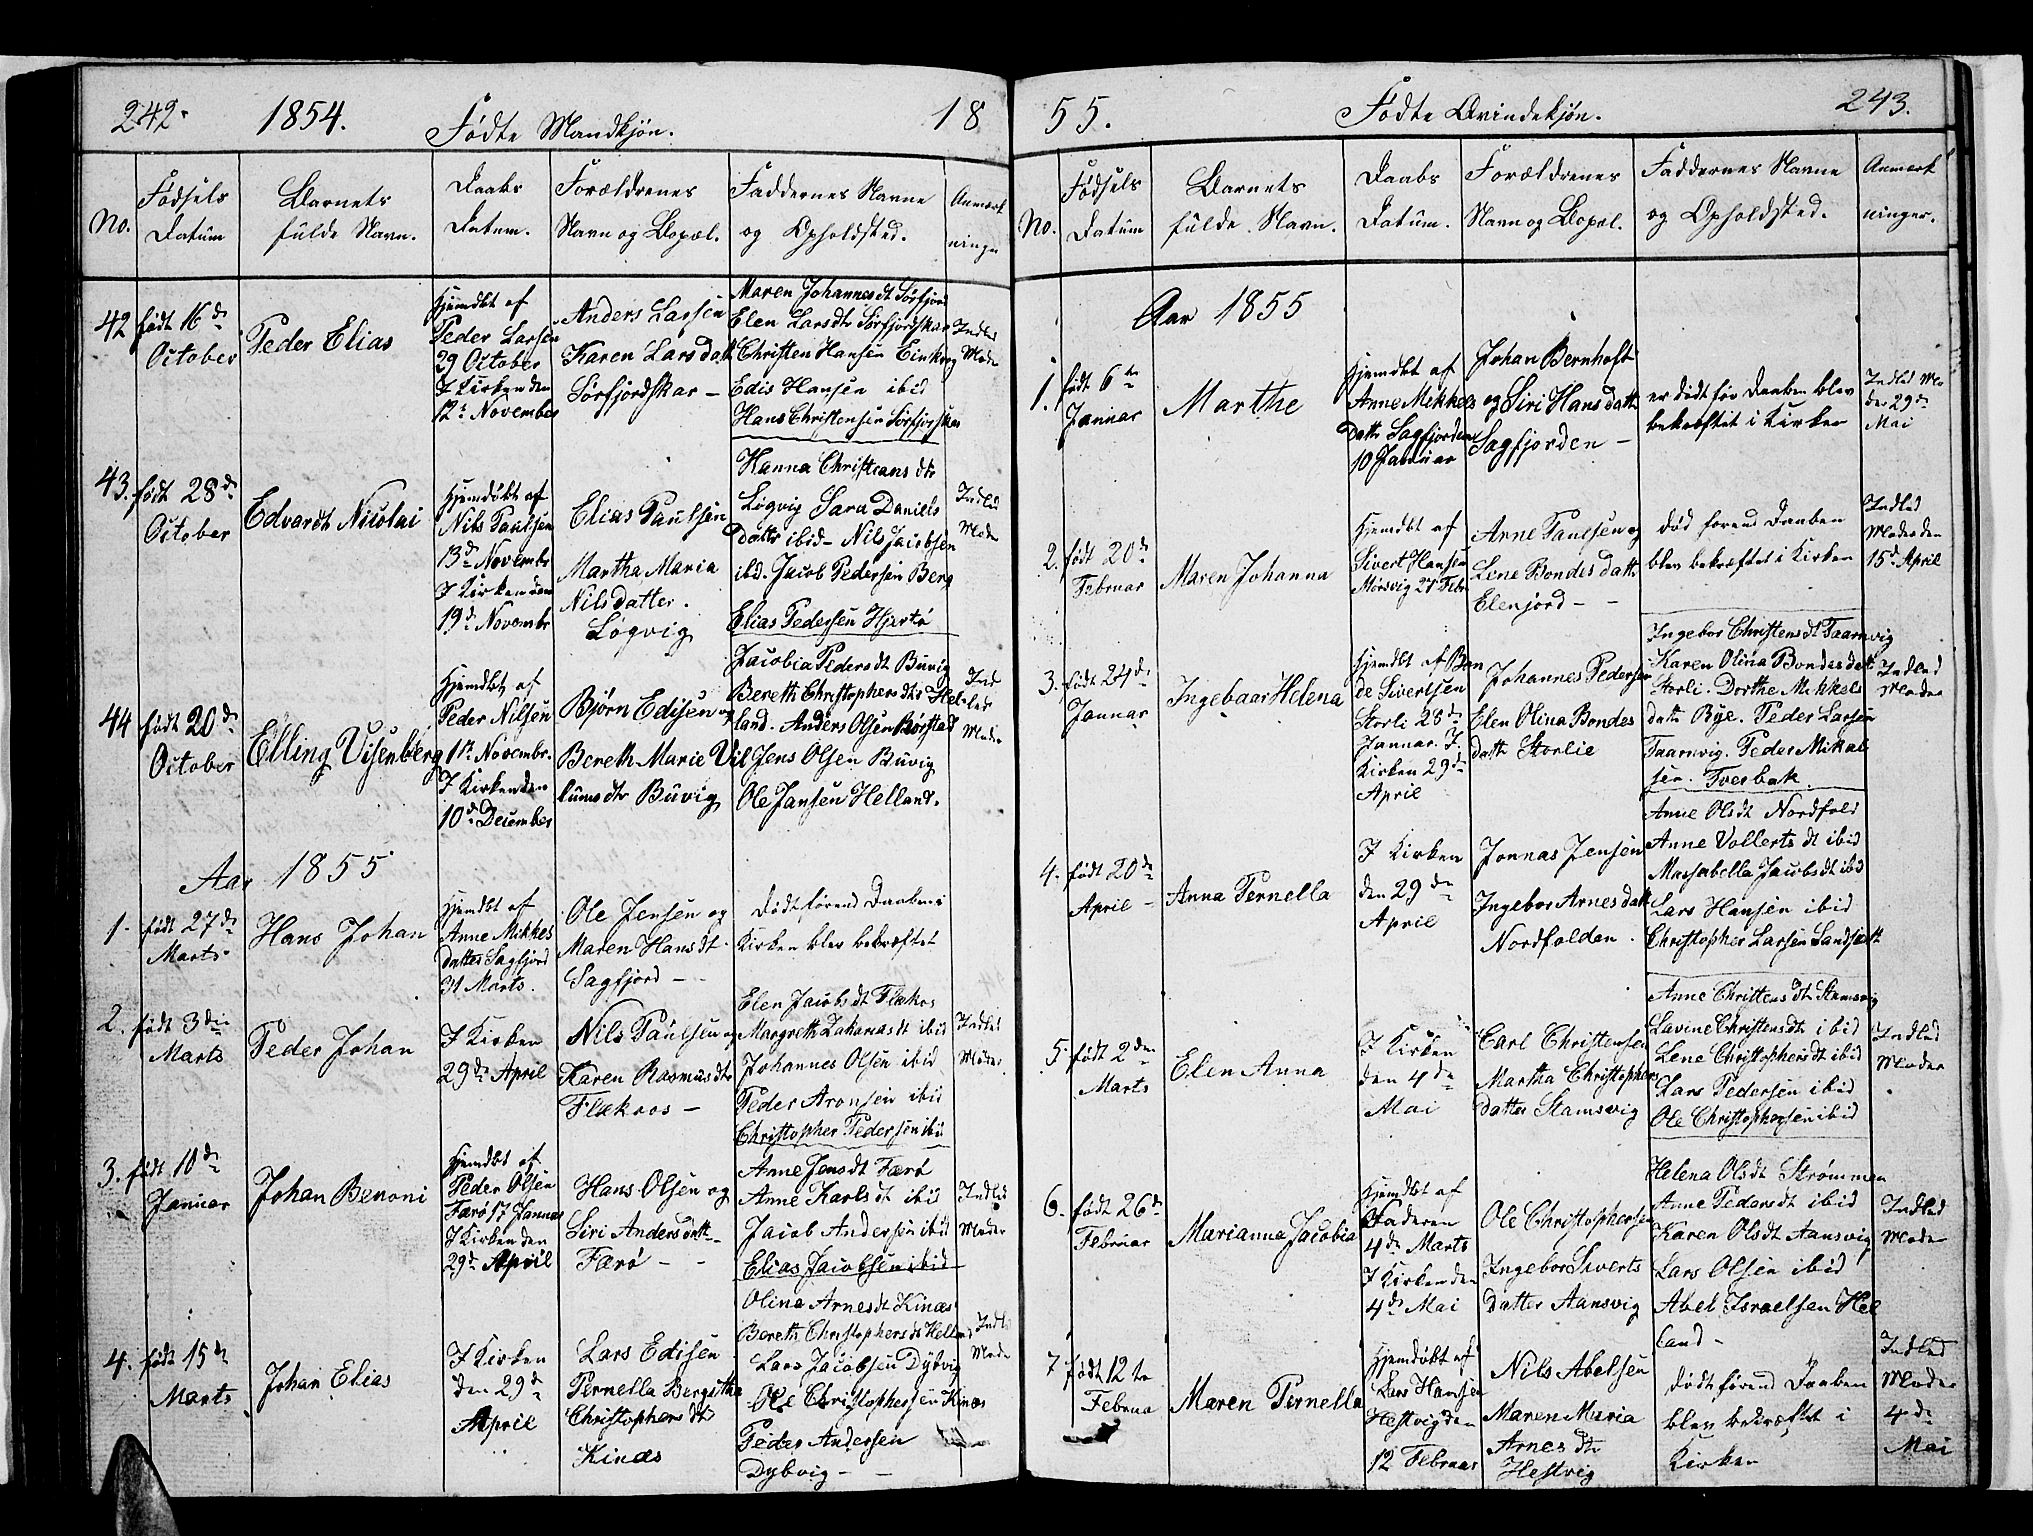 242.
1854.
Fødte Mandkjøn.
18
No.
Fødsels
Datum
Barnets
fulde Navn.
Daabs
Datum.
Forældrenes
Navn og Bopæl.
Faddernes Navne
og Opholdsted.
Anmærk
ninger
42
født 16de
October
Peder Elias
Hjemdbt af
Peder Larsen
29 October
I Kirken den
12te November
Anders Larsen
Karen Larsdatt
Sørfjordskar –
Maren Johannesdt Sørfjord
Elen Larsdtr Sørfjordskar
Christen Hansen
Edis Hansen ibid
Hans Christensen Sørfjorskar
Indled
Moder
43.
født 28de
October
Edvardt Nicolai
Hjemdøbt af
Nils Paulsen
13de Novembr
I Kirken den
19de Novembr
Elias Paulsen
Martha Maria
Nilsdatter.
Løgvig
Hanna Christians dtr
Løgvig Sara Daniels
Dattr ibid – Nils Jacobsen
ibid. Jacob Pedersen Berg
Elias Pedersen Hjertø
Indled
Moder
44
født 20de
October
Elling Visenberg
Hjemdbt af
Peder Nilsen
1te Novembr.
I Kirken den
10de December
Bjørn Edisen og
Bereth Marie Vil
lumsdtr Buvig
Jacobia Pedersdt Buvig
Bereth Christophersdtr Hel
land. Anders Olsen Rørstad
Jens Olsen Buvig
Ole Jansen Helland.
Ind
led
Moder
Aar 1855
1.
født 27de
Marts.
Hans Johan
Hjemdbt af
Anne Mikkels
datter Sagfjord
31 Marts.
Ole Jensen og
Maren Hansdt
Sagfjord – –
Død førend Daaben i
Kirken blev bekræftet
2.
født 3die
Marts
Peder Johan
I Kirken
29de April
Nils Paulsen og
Karen Rasmusdtr
Flækros –
Elen Jacobsdt Flækros
Margreth Zakariasdt ibid
Johannes Olsen ibid
Peder Aronsen ibid
Christopher Pedersen ibid
Indled
Moder
3.
født 10de
Januar
Johan Benoni
Hjemdbt af
Peder Olsen
Færø 17 Januar
I Kirken den
29de April
Hans Olsen og
Siri Andersdtr –
Færø – –
Anne Jensdt Færø
Anne Karlsdt ibid
Jacob Andersen ibid
Elias Jacobsen ibid
Indled
Moder
4.
født 15de
Marts
Johan Elias
I Kirken
den 29de
April
Lars Edisen
Pernella Bergitha
Christophersdtr
Kinæs
Olina Arnesdt Kinæs
Bereth Christophersdt Helland
Lars Jacobsen Dybvig
Ole Christophersen Kinæs
Peder Andersen
Dybvig –
Indled
Moder
55.
Fødte Qvindekjøn.
243.
No.
Fødsels
Datum
Barnets
fulde Navn.
Daabs
Datum.
Forældrenes
Navn og Bopæl.
Faddernes Navne
og Opholdsted.
Anmærk
ninger.
Aar 1855
1.
født 6te
Januar
Marthe
Hjemdbt af
Anne Mikkels
Dattr Sagfjorden
10 Januar
Johan Bernhoft
og Siri Hansdattr
Sagfjorden –
er død før Daaben blev
bekræftet i Kirken
Indled Mo
der 29de
Mai
2.
født 20de
Februar
Maren Johanna
Hjemdbt af
Sivert Hansen
Mørsvig 27 Febr
Arne Paulsen og
Lene Bondesdattr
Elenjord – –
død førend Daaben
blev bekræftet i Kirken
Indled
Moder den
15de April
3.
født 24de
Januar
Ingebaar Helena
Hjemdbt af Bon
de Sivertsen
Storli 28de
Januar. I
Kirken 29de
April
Johannes Pedersen
Elen Olina Bondes
dattr Storlie
Ingebor Christensdt Taarnvig
Karen Olina Bondesdattr
Storli. Dorthe Mikkels
dattr Bye. Peder Larsen
Taarnvig. Peder Mikal
sen. Tverbak.
Indled
Moder
4.
født 20de
April –
Anna Pernella
I Kirken
den 29de
April
Jonnas Jensen
Ingebor Arnesdatt
Nordfolden.
Anne Olsdt Nordfold
Anne Vollertsdt ibid
Massabella Jacobsdt ibid
Lars Hansen ibid
Christopher Larsen Sandsætt
5.
født 2den
Marts
Elen Anna
I Kirken
den 4de
Mai
Carl Christensen
Martha Christophers
datter Stamsvig
Anne Christensdtr Stamsvig
Lavine Christensdtr ibid
Lene Christophersdt ibid
Lars Pedersen ibid
Ole Christophersen ibid
Indled
Moder
6.
født 26de
Februar
Marianna Jacobia
Hjemdbt af
Faderen
4de Marts
I Kirken den
4de Mai
Ole Christophersen
Ingebor Siverts
datter Aansvig
Helena Olsdt Strømmen
Anne Pedersdt ibid
Karen Olsdt Aansvig
Lars Olsen ibid
Abel Israelsen Hel
land –
Indled
Moder
7
født 12te
Februa
Maren Pernella
Hjemdøbt af
Lars Hansen
Hestvig den
12 Februar
Nils Abelsen
Maren Maria
Arnesdtr
Hestvig
død førend Daaben
blev bekræftet i
Kirken
Indled
Moder
4de
Mai